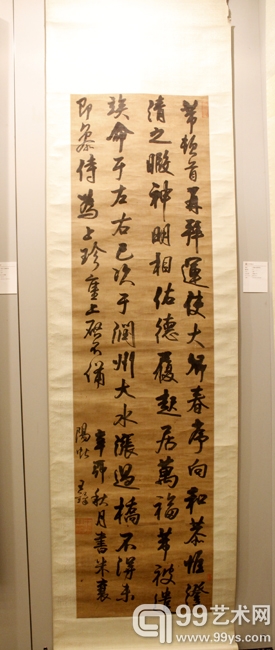 芾頓首再拜運使大師春序向和恭惟澄
清之暇神明相佑德履起居萬福芾被遣
竢命于左右已次于潤州大水漲過橋不得未
即參侍為上珍重上啟不備
秋月書米襄
陽帖
99艺术网
www.99ys.com